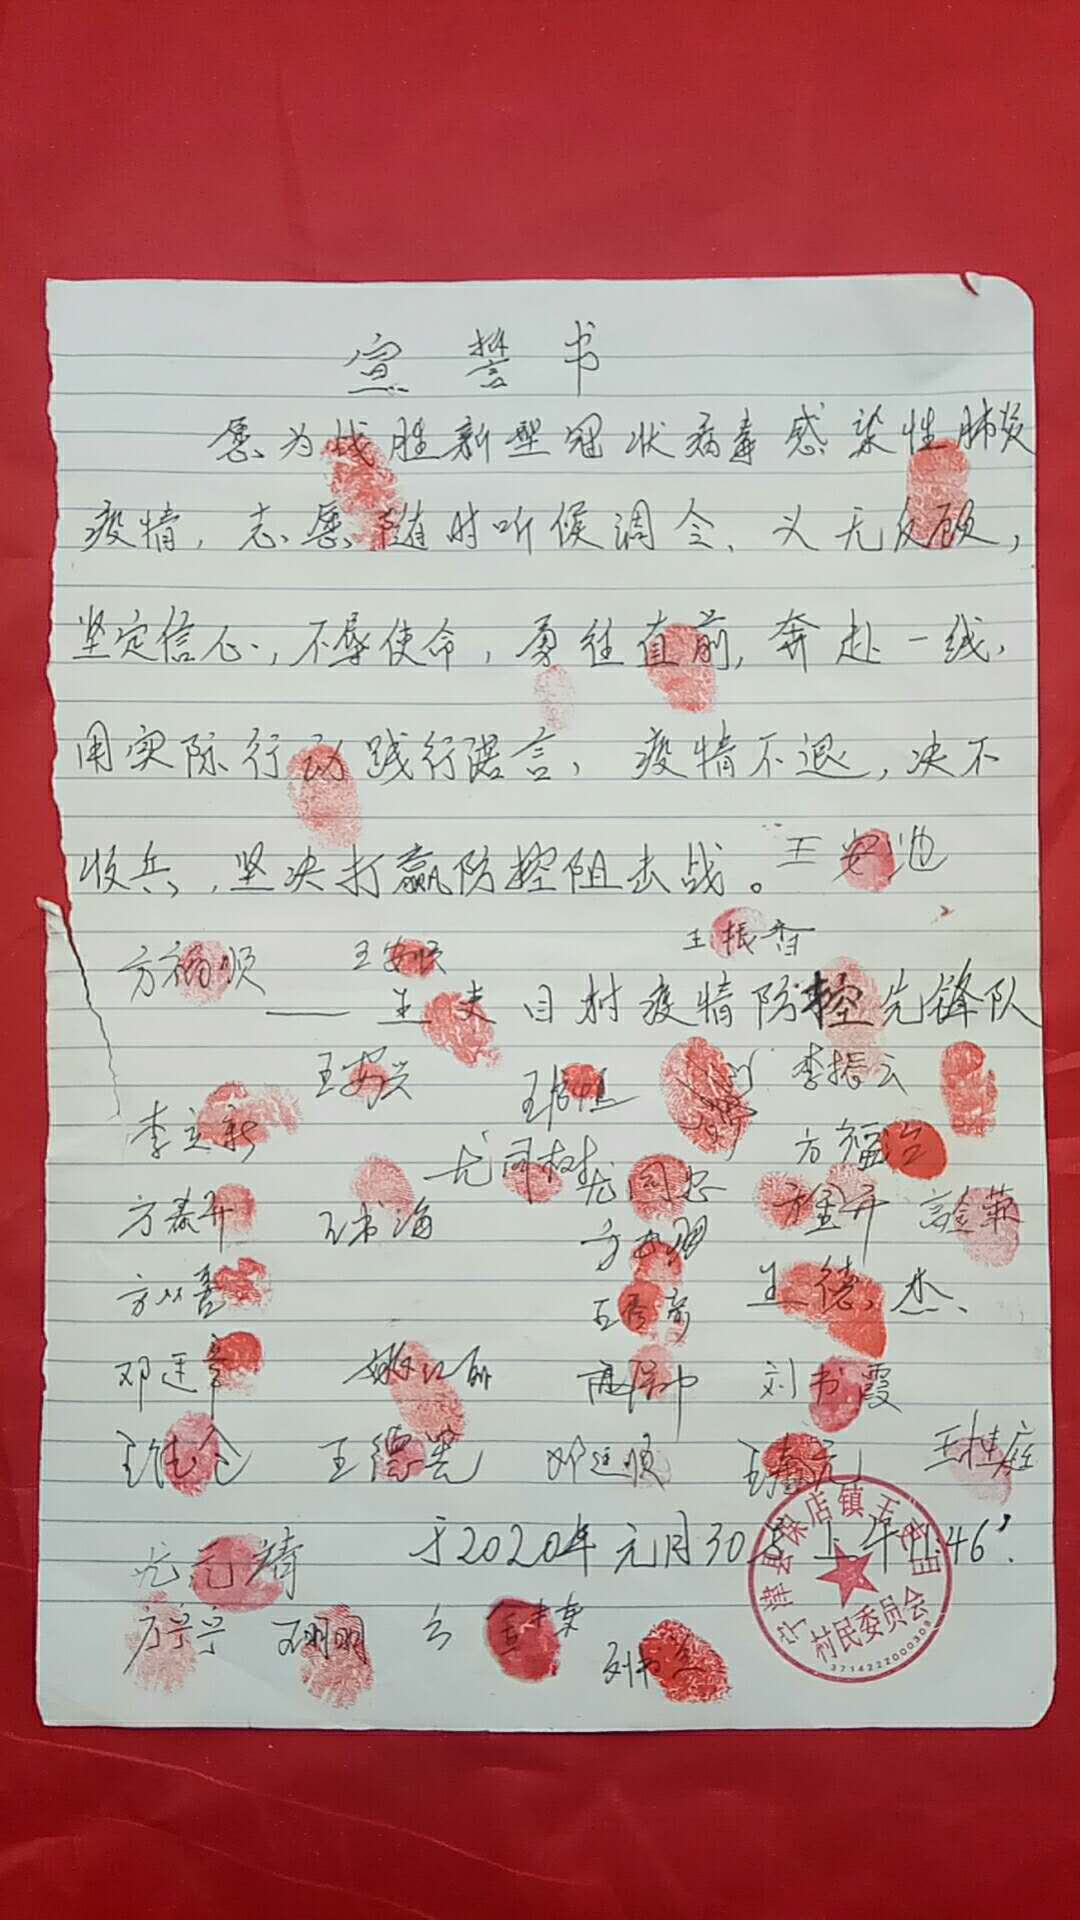 宣誓书
愿为战胜新型冠状病毒感染性肺炎
疫情，志愿随时听候调令、义无反顾，
坚定信心，不辱使命，勇往直前，奔赴一线，
用实际行动践行诺言，疫情不退，决不
收兵，坚决打赢防控阻击战。王安池
方福顺 王安顺 王振香
——王夫目村疫情防控先锋队
王安兴 李振云
李立新 方福治
尤同树 尤同忠
方春开 王书海 方金开
方以喜 王德杰
邓连章 刘书霞
王德光 邓连顺 王桂庭
尤元靖 于2020年元月30号上午11.46'.
方宁宁 王明明 刘书兰
宁津县保店镇王夫目
村民委员会
3714222000309